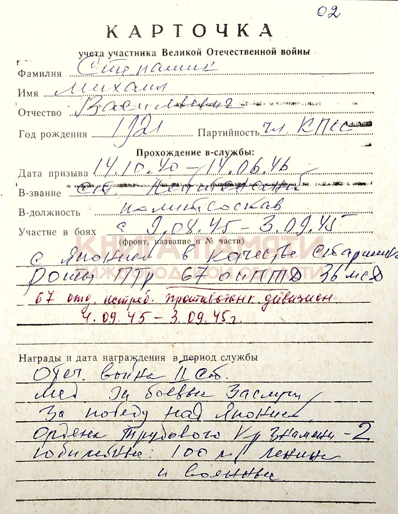 02
КАРТОЧКА
учета участника Великой Отечественной войны
Фамилия
Имя Михаил
Отчество Васильевич
Год рождения 1921 Партийность чл. КПСС
Прохождение в-службы:
Дата призыва 14.10.40 – 14.06.46
В-звание ст.
В-должность политсостав
Участие в боях с 9.08.45 – 3.09.45
(фронт, название и № части)
с Японией в качестве старшины
роты ПТР 67 оиптд 36 мсд
67 отд. истреб. противотанк. дивизион
9.09.45 – 3.09.45г.
КНИГА ПАМЯТИ
Награды и дата награждения в период службы
Отеч. война II ст.
мед. За боевые заслуги
За победу над Японией
Ордена Трудового Кр Знамени – 2
Юбилейные: 100 л. Ленина
и военные